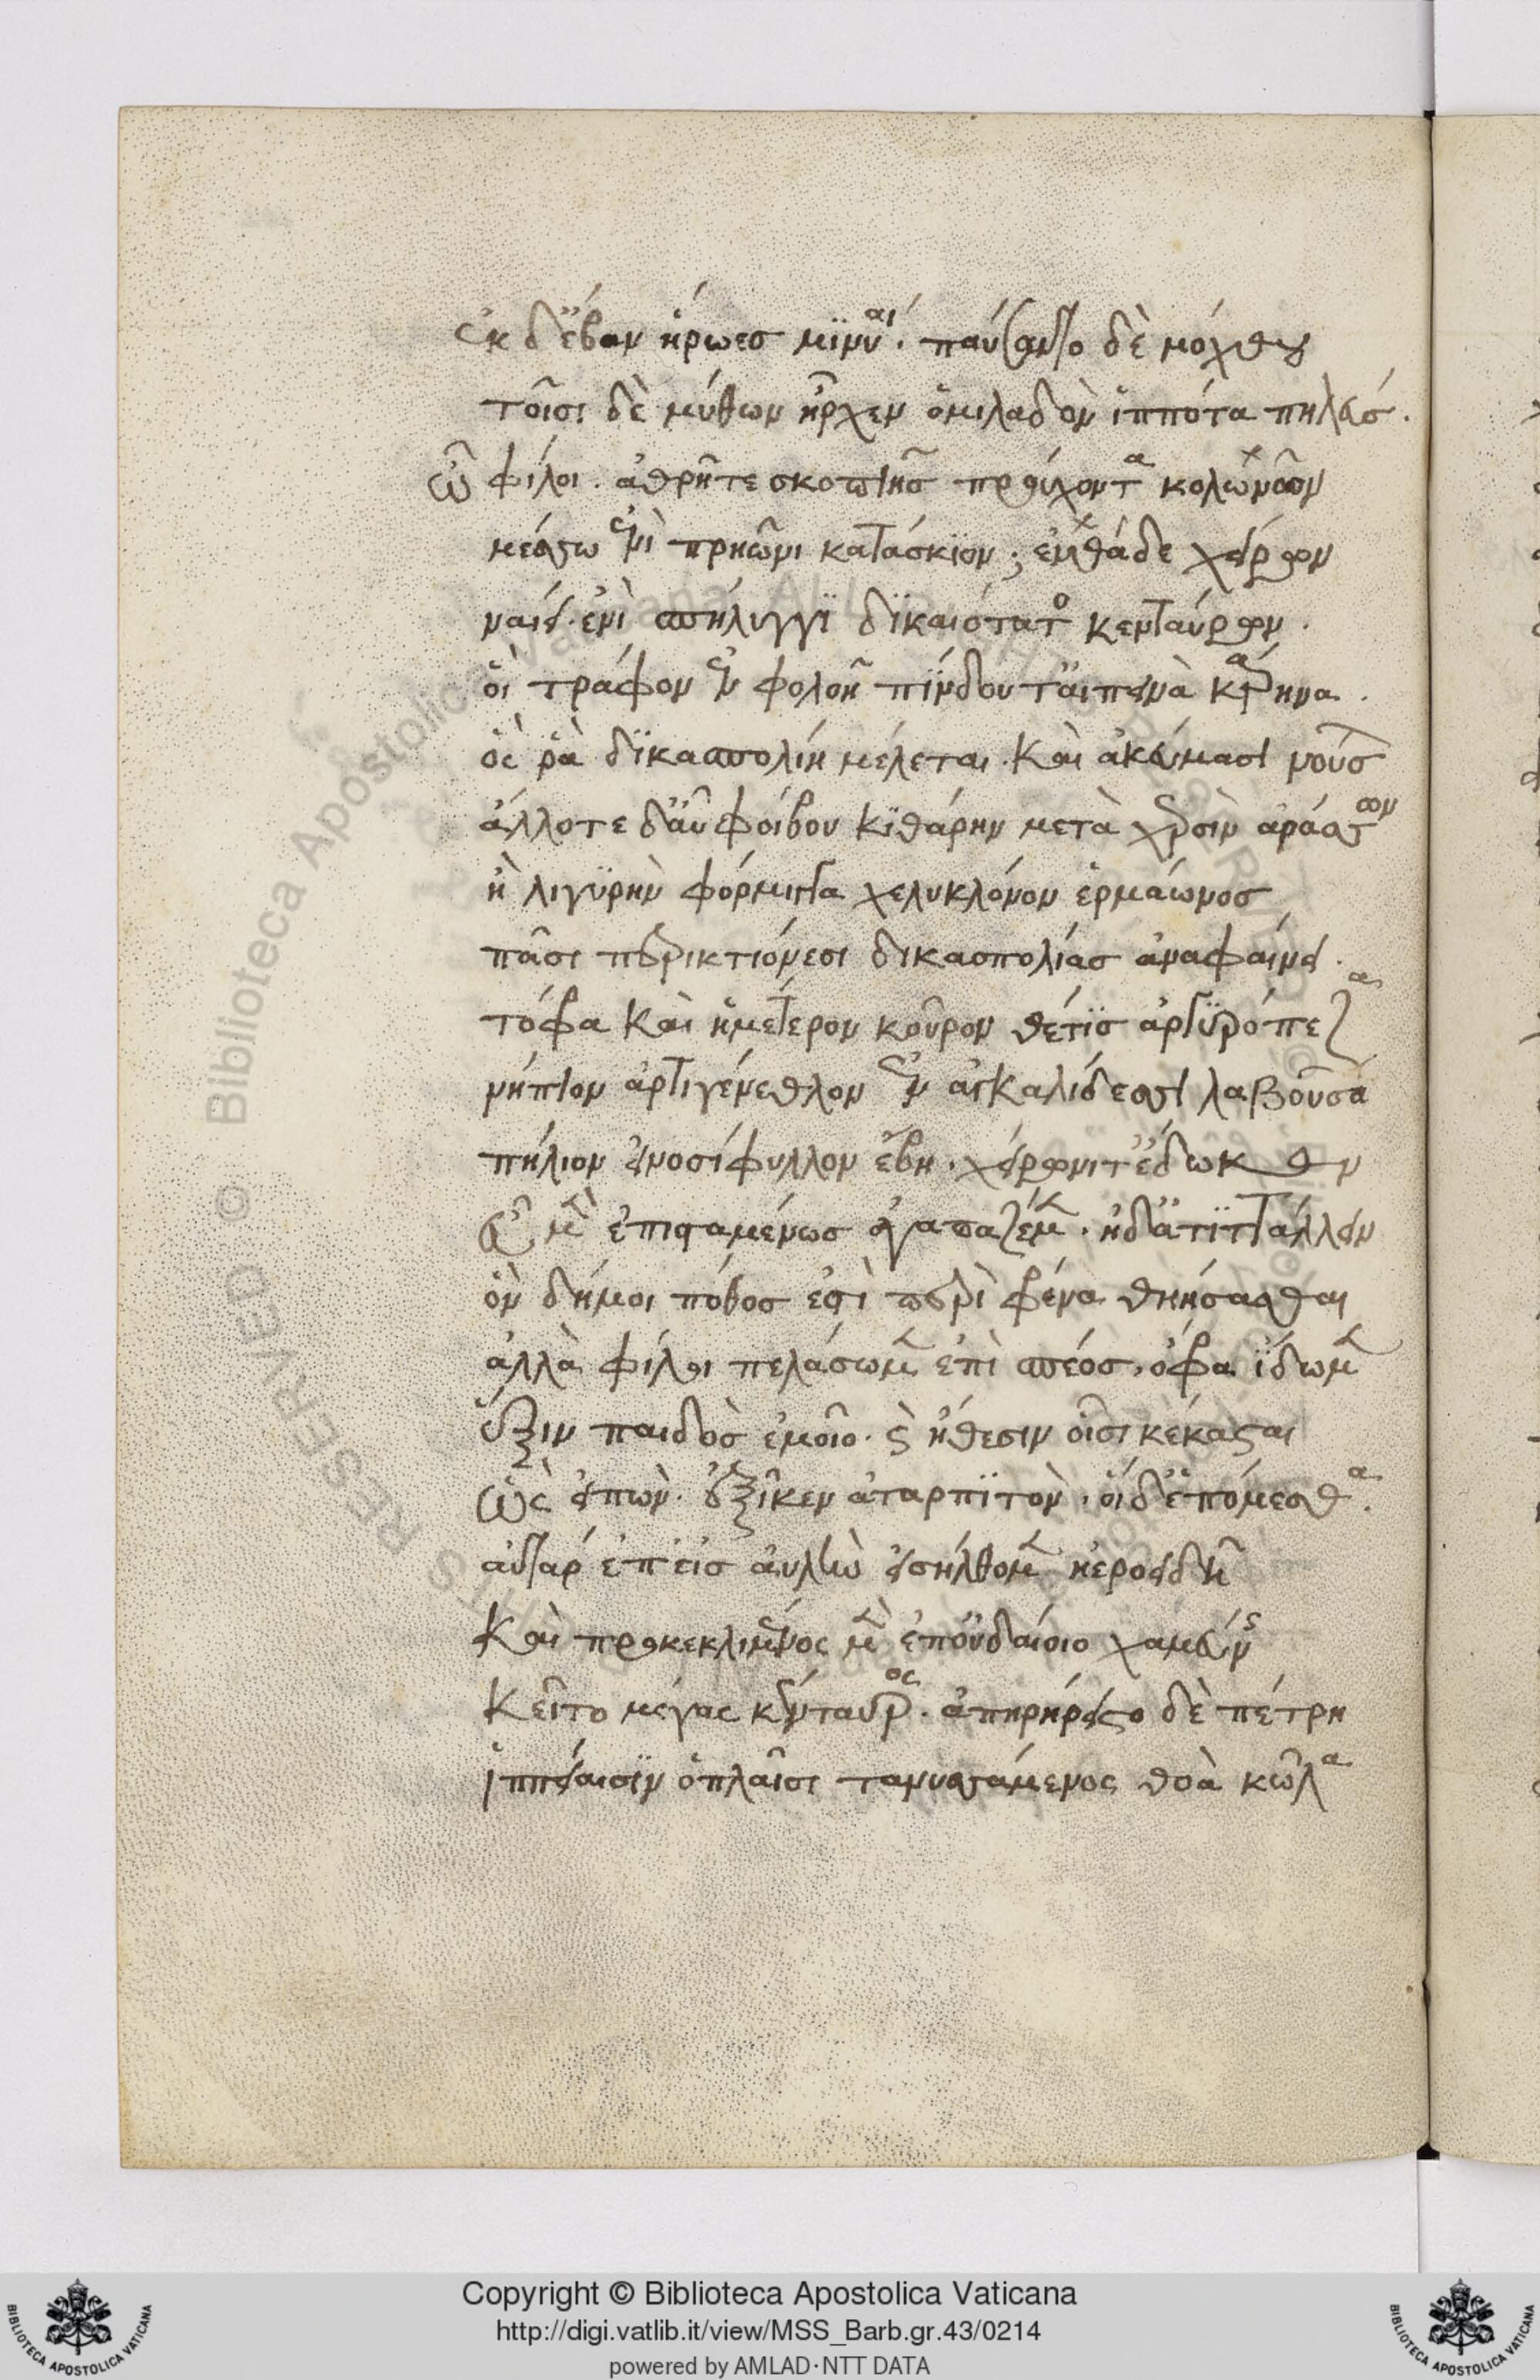 ἐκ δ' ἔβαν ἥρωες μϊνύαι. παύσαντο δὲ μόχθου
τοῖσι δὲ μύθων ἦρχεν ὁμιλαδὸν ἱππότα πηλεύς.
ὦ φίλοι. ἀθρῆτε σκοπιῆς προὔχοντα κολωνὸν
μέσσω ἐνὶ πρηῶνι κατάσκϊον; ἐνθάδε χείρων
ναίει. ἐνὶ σπήλυγγϊ δϊκαιότατο κενταύρων.
οἳ τράφον ἐν φολοῆ πίνδου τ' αἰπεινὰ κάρηνα.
ὅς ῥὰ δϊκασπολίη μέλεται. καὶ ἀκέσμασι νούσ
ἄλλοτε δ' αὖ φοίβου κϊθάρην μετὰ χερσὶν ἀράσσων
ἢ λιγϋρὴν φόρμιγγα χελυκλόνον ἑρμάωνος
πᾶσι περικτιόνεσι δικασπολίας ἀναφαίνει.
τόφρα καὶ ἡμέτερον κοῦρον θέτϊς ἀργϋρόπεζα
νήπιον ἀρτιγένεθλον ἐν ἀγκαλίδεσσι λαβοῦσα
πήλιον εἰνοσίφυλλον ἔβη. χείρωνι τ' ἔδωκεν
εὖ μὲν ἐπισταμένως ἀγαπαζέμεν. ἠδ' ἀτϊτάλλειν
ὃν δή μοι πόθος ἐστὶ περὶ φρένα θηήσασθαι
ἀλλὰ φίλοι πελάσωμεν ἐπὶ σπέος, ὄφρα ἴδωμεν
ἕξιν παιδὸς ἐμοῖο. καὶ ἤθεσιν οἷσι κέκασται
ὣς εἰπὼν. ἐξῖκεν ἀταρπϊτὸν. οἱ δ' ἑπόμεσθα.
αὐτὰρ ἔπ' εἰς αὐλὴν εἰσήλθομεν ἠεροειδῆ
καὶ προκεκλιμένος μὲν ἐπ' οὐδαίοιο χαμεύνης
κεῖτο μέγας κένταυρος. ἀπηρήρειστο δὲ πέτρη
ἱππείαισϊν ὁπλαῖσι τανυσσάμενος θοὰ κῶλα
Copyright © Biblioteca Apostolica Vaticana
http://digi.vatlib.it/view/MSS_Barb.gr.43/0214
powered by AMLAD·NTT DATA